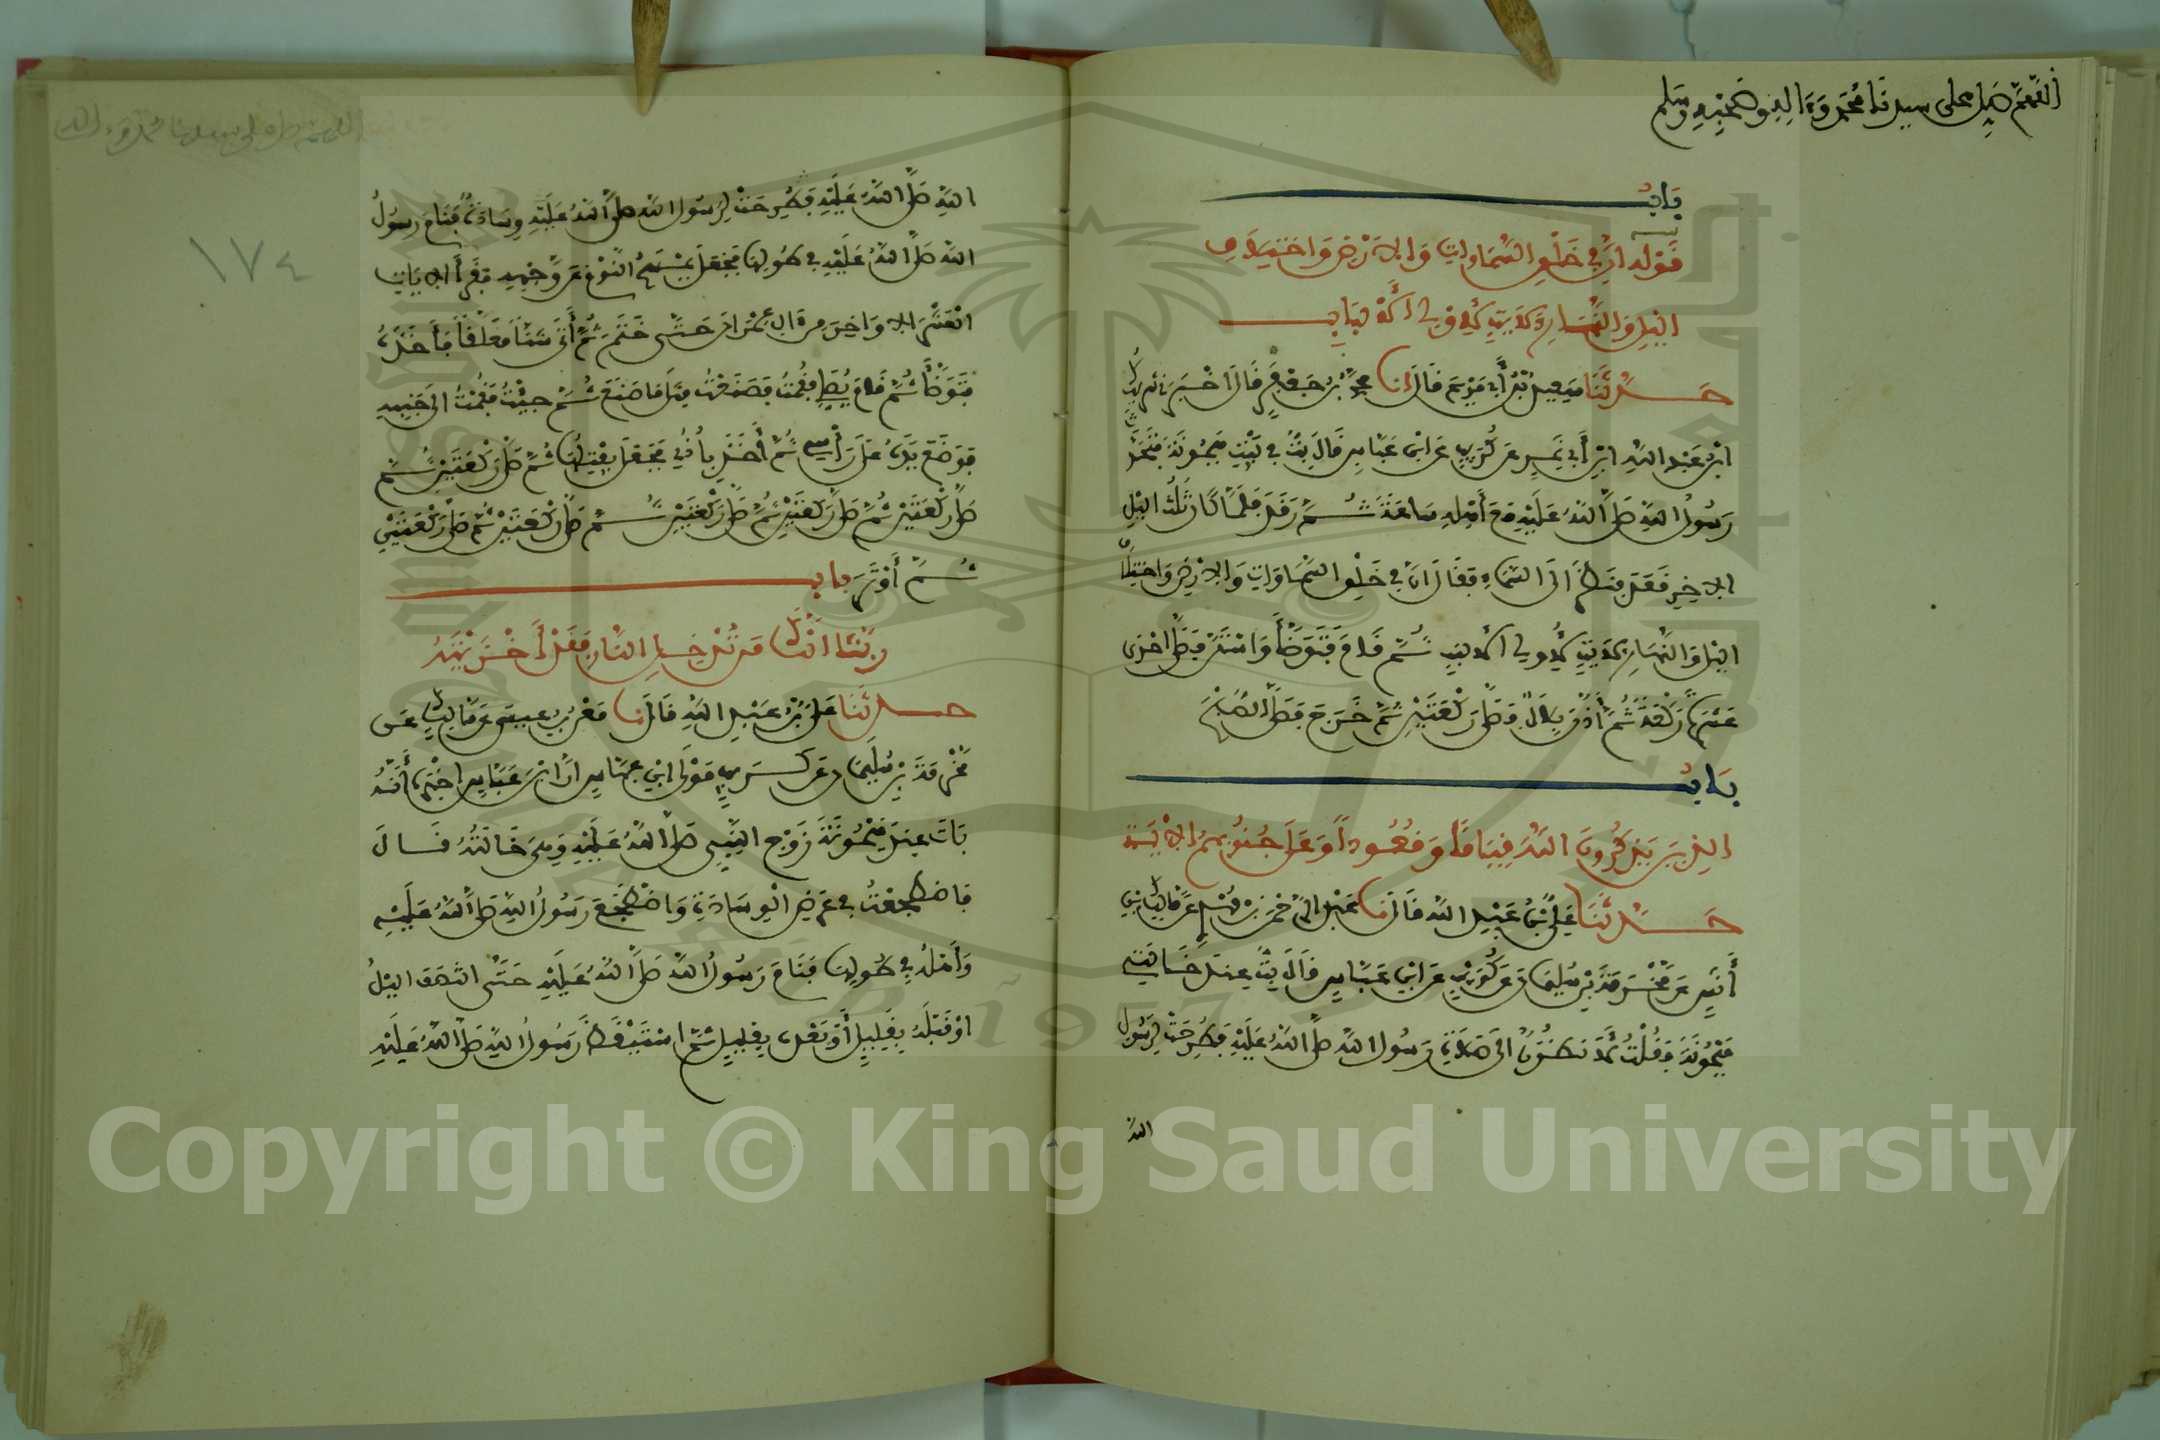 اللهم صل على سيدنا محمد وءاله وصحبه وسلم
باب
قوله ان في خلق السماوات والارض واختلاف
اليل والنهار لآيات لأولي الألباب
حدثنا سعيد بن أبي مريم قال انا محمد بن جعفر قال اخبرني شريك
ابن عبد الله ابن أبي نمر عن كريب عن ابن عباس قال بت في بيت ميمونة فتحدث
رسول الله صلى الله عليه مع أهله ساعة ثم رقد فلما كان ثلث اليل
الاخر قعد فنظر الى السماء فقال ان في خلق السماوات والارض واختلاف
اليل والنهار لآيات لأولي الألباب ثم قام فتوضأ واستن فصلى احدى
عشرة ركعة ثم أذن بلال فصلى ركعتين ثم خرج فصلى الصبح
باب
الذين يذكرون الله قياما وقعودا وعلى جنوبهم الآية
حدثنا علي بن عبد الله قال نا عبد الرحمن بن مهدي عن مالك بن
أنس عن مخرمة بن سليمان عن كريب عن ابن عباس قال بت عند خالتي
ميمونة فقلت لأنظرن الى صلاة رسول الله صلى الله عليه فطرحت لرسول
الله
الله صلى الله عليه فطرحت لرسول الله صلى الله عليه وسادة فنام رسول
الله صلى الله عليه في طولها فجعل يمسح النوم عن وجهه فقرأ الآيات
العشر الاواخر من ءال عمران حتى ختم ثم أتى شنا معلقا فأخذه
فتوضأ ثم قام يصلي فقمت فصنعت مثل ما صنع ثم جيت فقمت الى جنبه
فوضع يده على رأسي ثم أخذ بأذني فجعل يفتلها ثم صلى ركعتين ثم
صلى ركعتين ثم صلى ركعتين ثم صلى ركعتين ثم صلى ركعتين ثم صلى ركعتين
ثم أوتر باب
ربنا انك من تدخل النار فقد أخزيته
حدثنا علي بن عبد الله قال نا معن بن عيسى عن مالك عن
مخرمة بن سليمان عن كريب مولى ابن عباس ان ابن عباس اخبره أنه
بات عند ميمونة زوج النبي صلى الله عليه وهي خالته قال
فاضطجعت في عرض الوسادة واضطجع رسول الله صلى الله عليه
وأهله في طولها فنام رسول الله صلى الله عليه حتى انتصف اليل
او قبله بقليل أو بعده بقليل ثم استيقظ رسول الله صلى الله عليه
١٧٤
Copyright © King Saud University